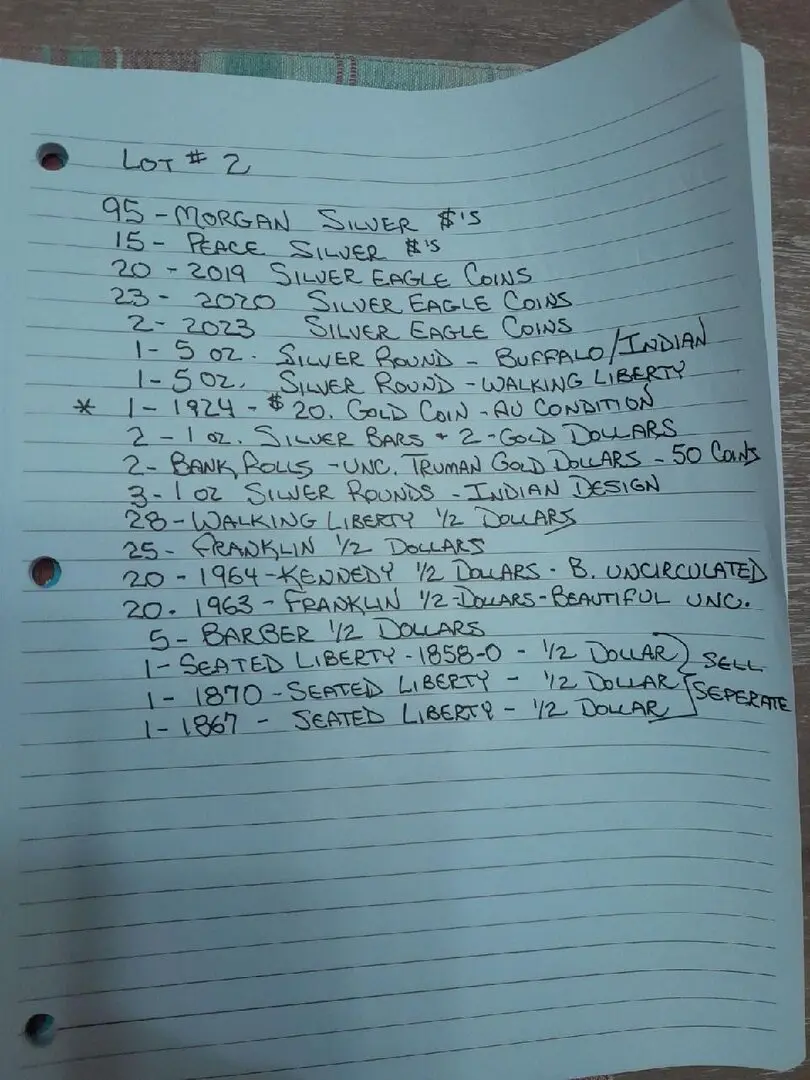 LOT # 2
95 - MORGAN SILVER $'S
15 - PEACE SILVER $'S
20 - 2019 SILVER EAGLE COINS
23 - 2020 SILVER EAGLE COINS
2 - 2023 SILVER EAGLE COINS
1 - 5 OZ. SILVER ROUND - BUFFALO/INDIAN
1 - 5 OZ. SILVER ROUND - WALKING LIBERTY
* 1 - 1924 - $20. GOLD COIN - AU CONDITION
2 - 1 OZ. SILVER BARS + 2 - GOLD DOLLARS
2 - BANK ROLLS - UNC. TRUMAN GOLD DOLLARS - 50 COINS
3 - 1 OZ SILVER ROUNDS - INDIAN DESIGN
28 - WALKING LIBERTY 1/2 DOLLARS
25 - FRANKLIN 1/2 DOLLARS
20 - 1964 - KENNEDY 1/2 DOLLARS - B. UNCIRCULATED
20 - 1963 - FRANKLIN 1/2 - DOLLARS - BEAUTIFUL UNC.
5 - BARBER 1/2 DOLLARS
1 - SEATED LIBERTY - 1858-O - 1/2 DOLLAR } SELL
1 - 1870 - SEATED LIBERTY - 1/2 DOLLAR } SEPERATE
1 - 1867 - SEATED LIBERTY - 1/2 DOLLAR